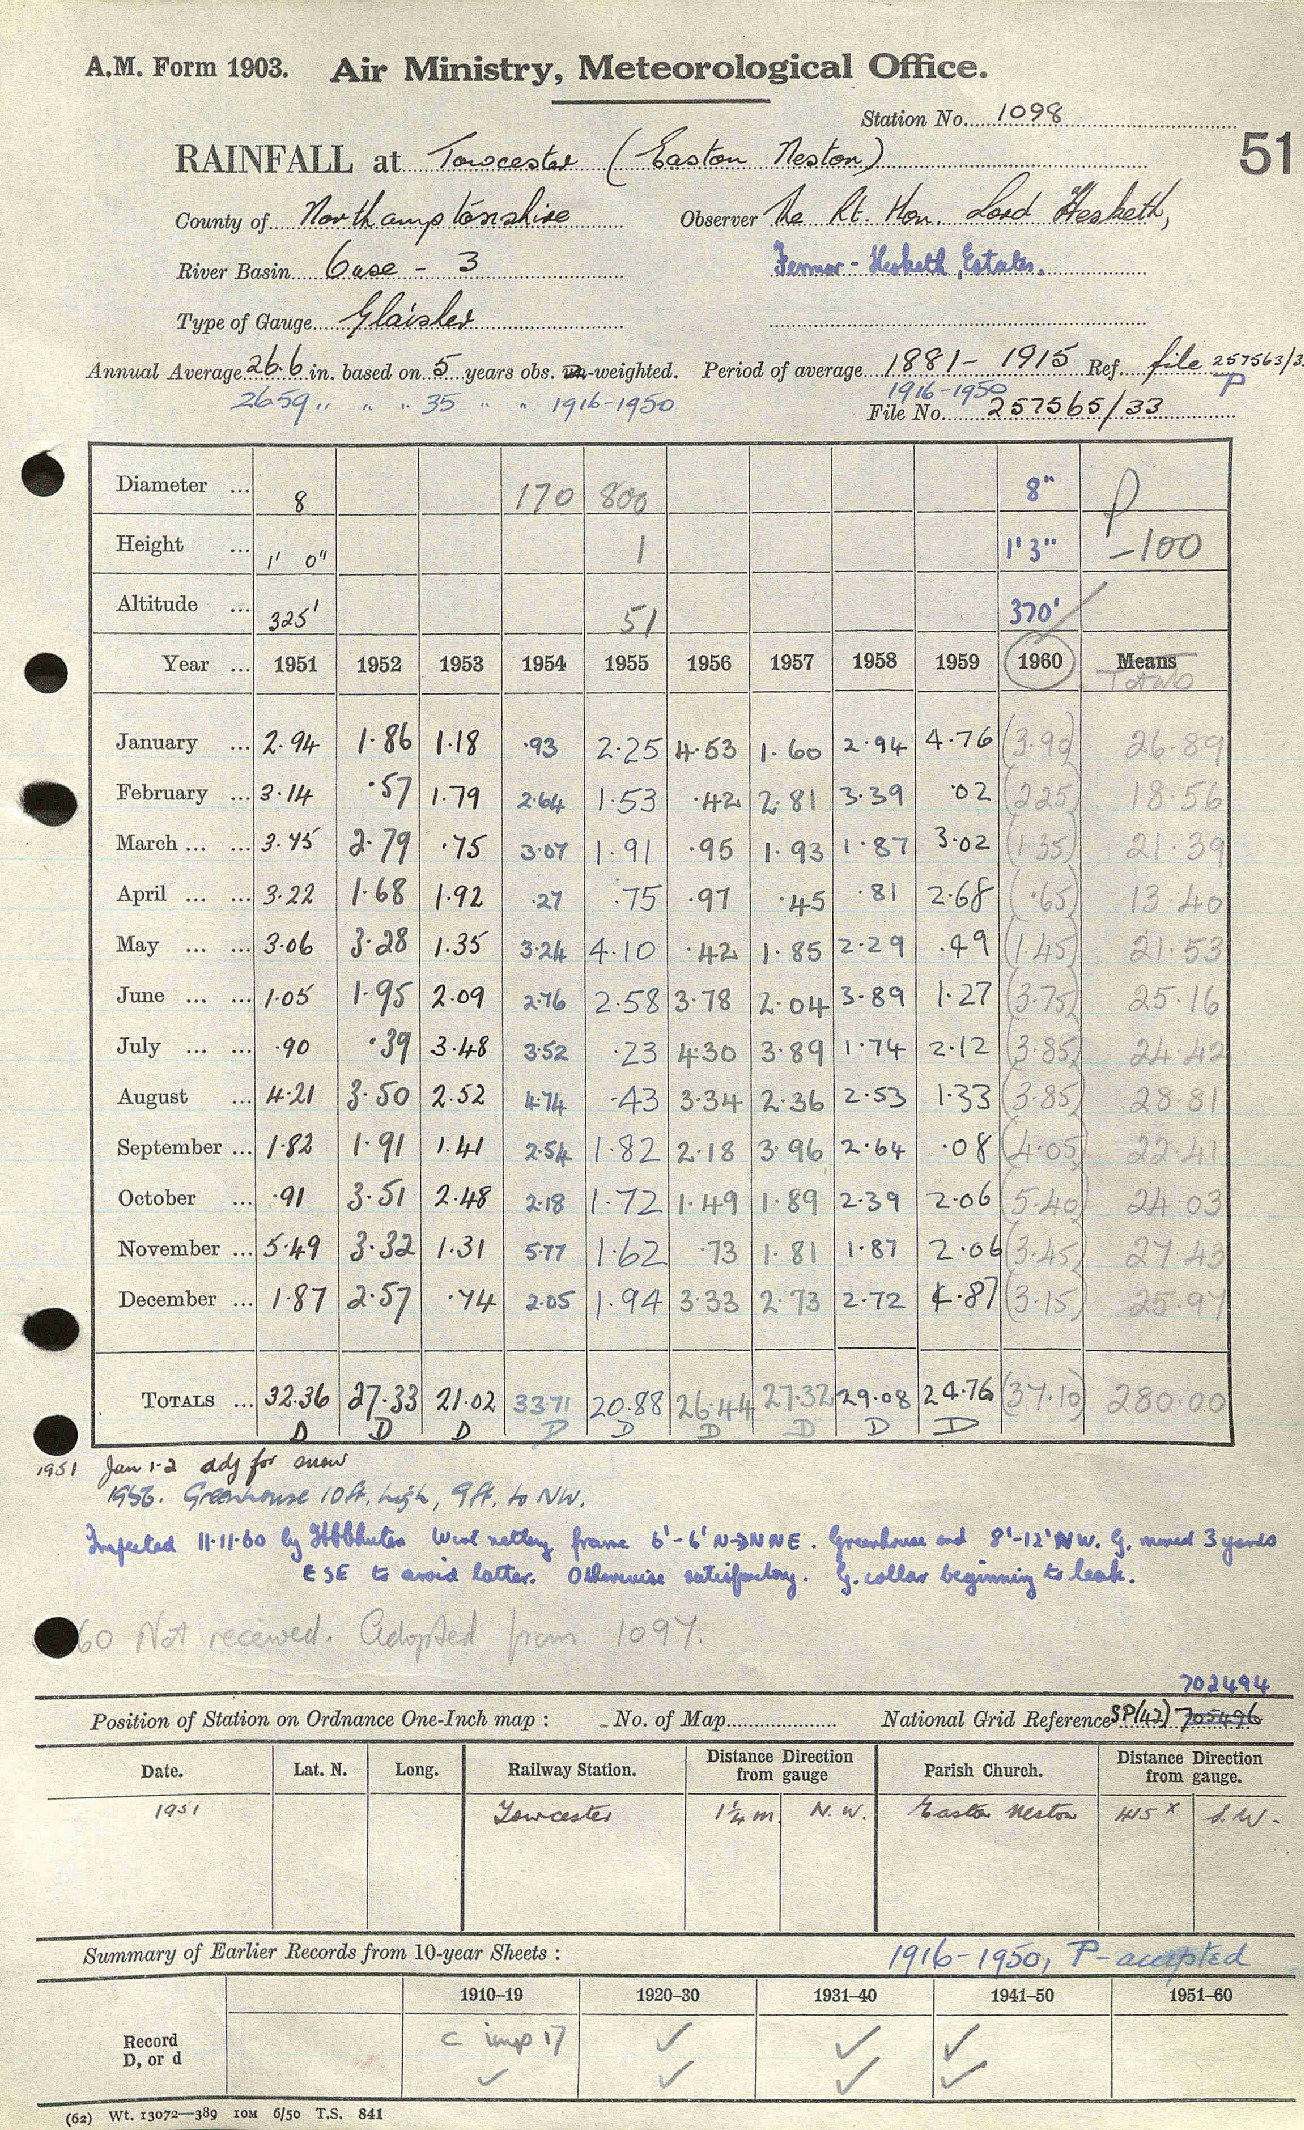 A.M. Form 1903. Air Ministry, Meteorological Office.
Station No. 1098
51
RAINFALL at Towcester (Easton Neston)
County of Northamptonshire Observer The Rt. Hon. Lord Hesketh,
River Basin Ouse - 3 Fermor-Hesketh Estates.
Type of Gauge Glaisher
Annual Average 26.6 in. based on 5 years obs. -weighted. Period of average 1881-1915 Ref. file 257563/3
P
26.59 " " " 35 " " 1916-1950 1916-1950
File No. 257565/33
Diameter ... 8 170 800 8" P
Height ... 1' 0" 1 1'3" -100
Altitude ... 325' 51 370'
Year ... 1951 1952 1953 1954 1955 1956 1957 1958 1959 1960 Means
Totals
January ... 2.94 1.86 1.18 .93 2.25 4.53 1.60 2.94 4.76 (3.90) 26.89
February ... 3.14 .57 1.79 2.64 1.53 .42 2.81 3.39 .02 (2.25) 18.56
March ... ... 3.75 2.79 .75 3.07 1.91 .95 1.93 1.87 3.02 (1.35) 21.39
April ... ... 3.22 1.68 1.92 .27 .75 .97 .45 .81 2.68 (.65) 13.40
May ... ... 3.06 3.28 1.35 3.24 4.10 .42 1.85 2.29 .49 (1.45) 21.53
June ... ... 1.05 1.95 2.09 2.76 2.58 3.78 2.04 3.89 1.27 (3.75) 25.16
July ... ... .90 .39 3.48 3.52 .23 4.30 3.89 1.74 2.12 (3.85) 24.42
August ... 4.21 3.50 2.52 4.74 .43 3.34 2.36 2.53 1.33 (3.85) 28.81
September ... 1.82 1.91 1.41 2.54 1.82 2.18 3.96 2.64 .08 (4.05) 22.41
October ... .91 3.51 2.48 2.18 1.72 1.49 1.89 2.39 2.06 (5.40) 24.03
November ... 5.49 3.32 1.31 5.77 1.62 .73 1.81 1.87 2.06 (3.45) 27.43
December ... 1.87 2.57 .74 2.05 1.94 3.33 2.73 2.72 4.87 (3.15) 25.97
Totals ... 32.36 27.33 21.02 33.71 20.88 26.44 27.32 29.08 24.76 (37.10) 280.00
D D D D D D D D D
1951 Jan 1-2 adj for snow
1956. Greenhouse 10ft. high, 9ft. to NW.
Inspected 11.11.60 by Wire netting frame 6'-6' N→NNE. Greenhouse end 8'-12' NW. G. moved 3 yards
ESE to avoid latter. Otherwise satisfactory. G. collar beginning to leak.
60 Not received. Adopted from 1097.
702494
Position of Station on Ordnance One-Inch map : No. of Map National Grid Reference SP(42) 705496
Date. Lat. N. Long. Railway Station. Distance Direction from gauge Parish Church. Distance Direction from gauge.
1951 Towcester 1¼ m N.W. Easton Neston 415 x S.W.
Summary of Earlier Records from 10-year Sheets : 1916-1950, P-accepted
1910–19 1920–30 1931–40 1941–50 1951–60
Record c imp 17 ✓ ✓ ✓
D, or d ✓ ✓ ✓ ✓
(62) Wt. 13072—389 IOM 6/50 T.S. 841